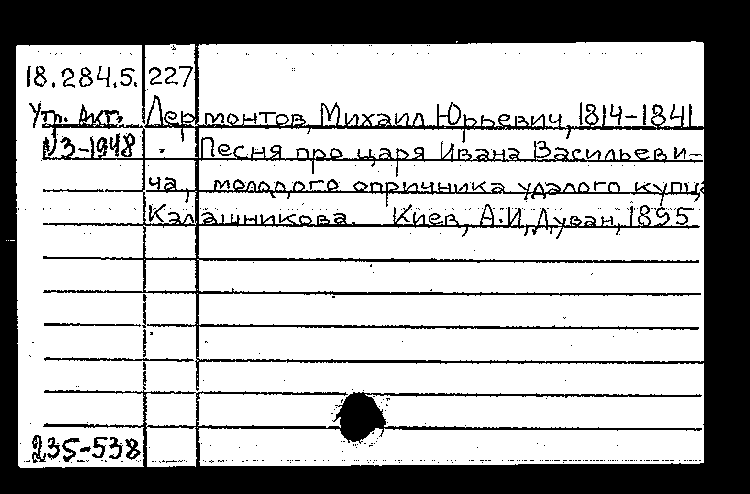 18.284.5.227
Утр. Акт. Лермонтов, Михаил Юрьевич, 1814-1841
№3-1948 . Песня про царя Ивана Васильеви-
ча, молодого опричника удалого купца
Калашникова. Киев, А.И.Дуван, 1895
235-538